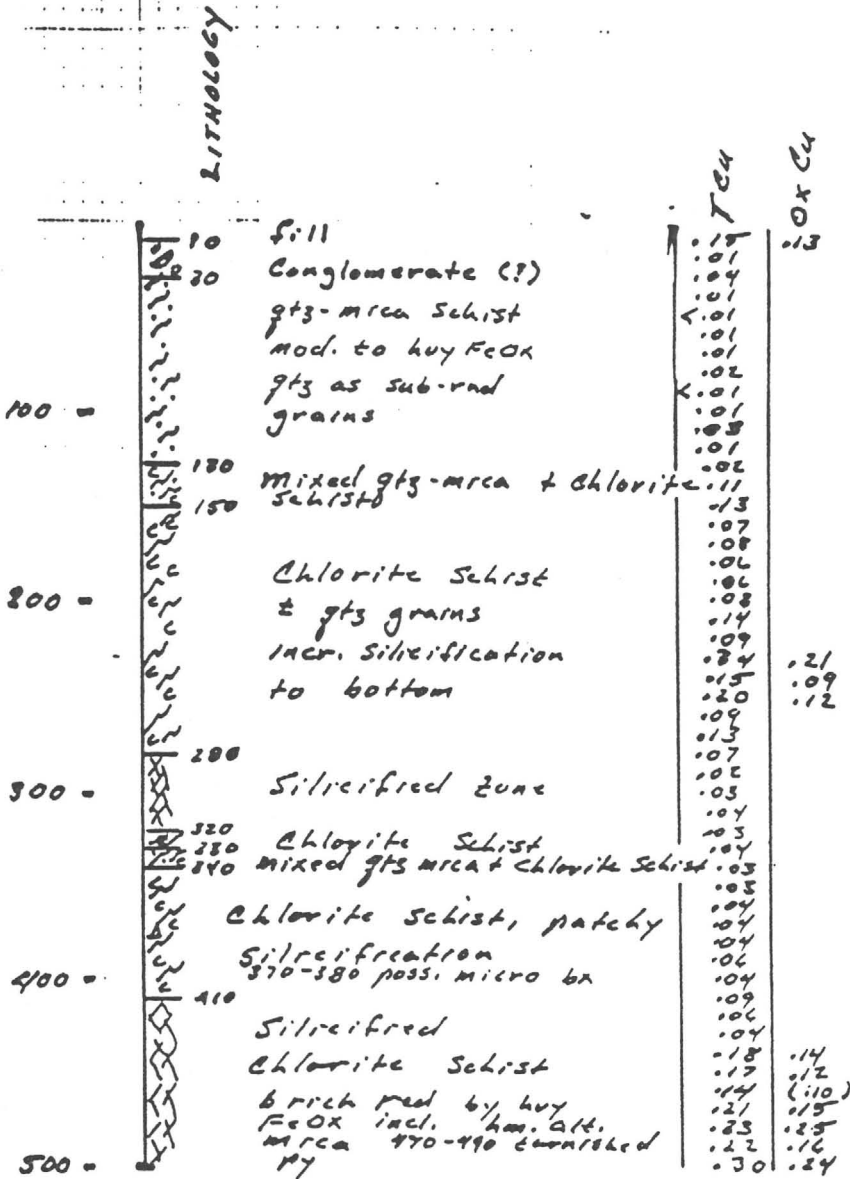 LITHOLOGY
T Cu
Ox Cu
10 fill
30 Conglomerate (?)
qtz-mica Schist
mod. to hvy FeOx
qtz as sub-rnd
grains
100 -
130
mixed qtz-mica + Chlorite
150 schists
Chlorite Schist
200 -
± qtz grains
incr. silicification
to bottom
280
300 - Silicified zone
320
Chlorite Schist
330
340 mixed qtz mica + Chlorite Schist
Chlorite schist, patchy
silicification
370-380 poss. micro bx
400 -
410
Silicified
Chlorite Schist
brick red by hvy
FeOx incl. hm. alt.
mica 470-490 tarnished
500 - py
.13
.01
.04
.01
<.01
.01
.01
.02
<.01
.01
.03
.01
.02
.11
.13
.07
.08
.06
.06
.08
.14
.09
.34 .21
.15 .09
.20 .12
.09
.13
.07
.02
.03
.04
.03
.04
.03
.03
.04
.04
.04
.06
.04
.09
.06
.04
.18 .14
.17 .12
.14 (.10)
.21 .15
.33 .25
.22 .16
.30 .24